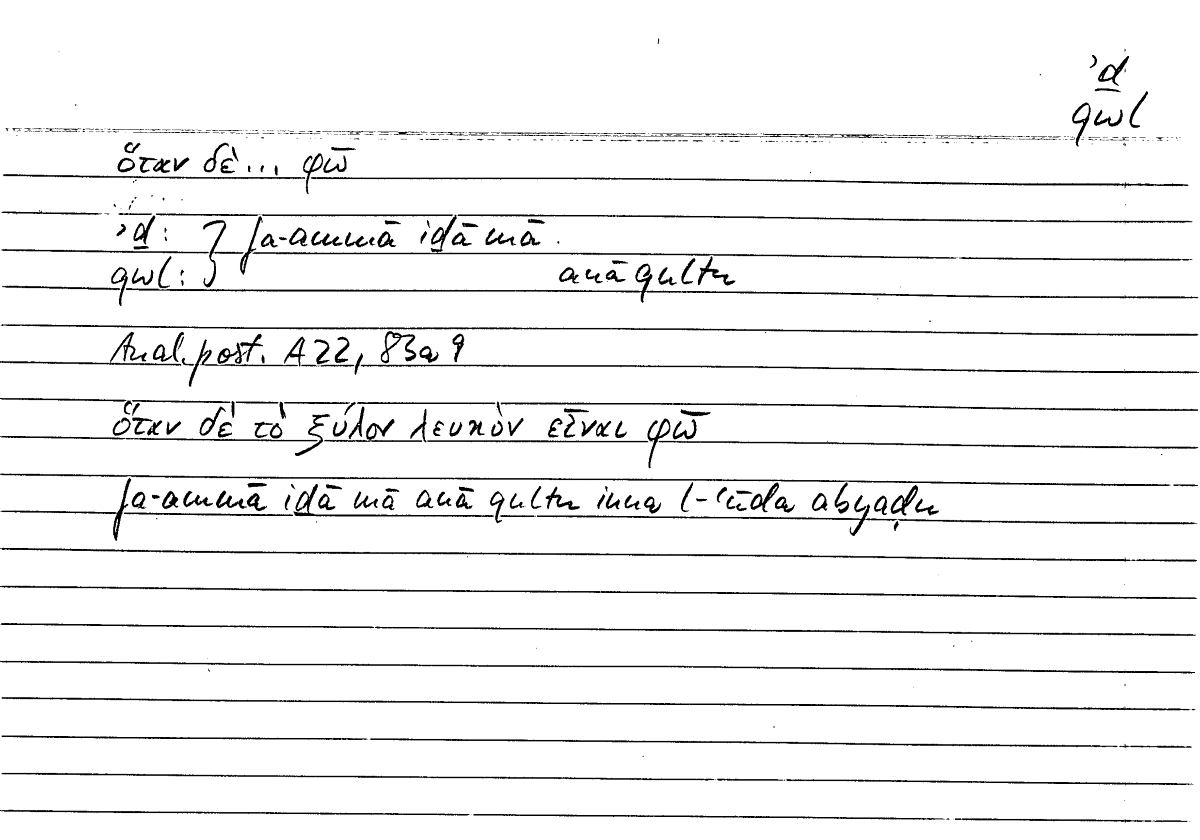 ʾḏ
qwl
ὅταν δὲ... φῶ
ʾḏ: } fa-ammā iḏā mā
qwl: anā qultu
Anal. post. A 22, 83a 9
ὅταν δὲ τὸ ξύλον λευκὸν εἶναι φῶ
fa-ammā iḏā mā anā qultu inna l-ʿūda abyaḍu